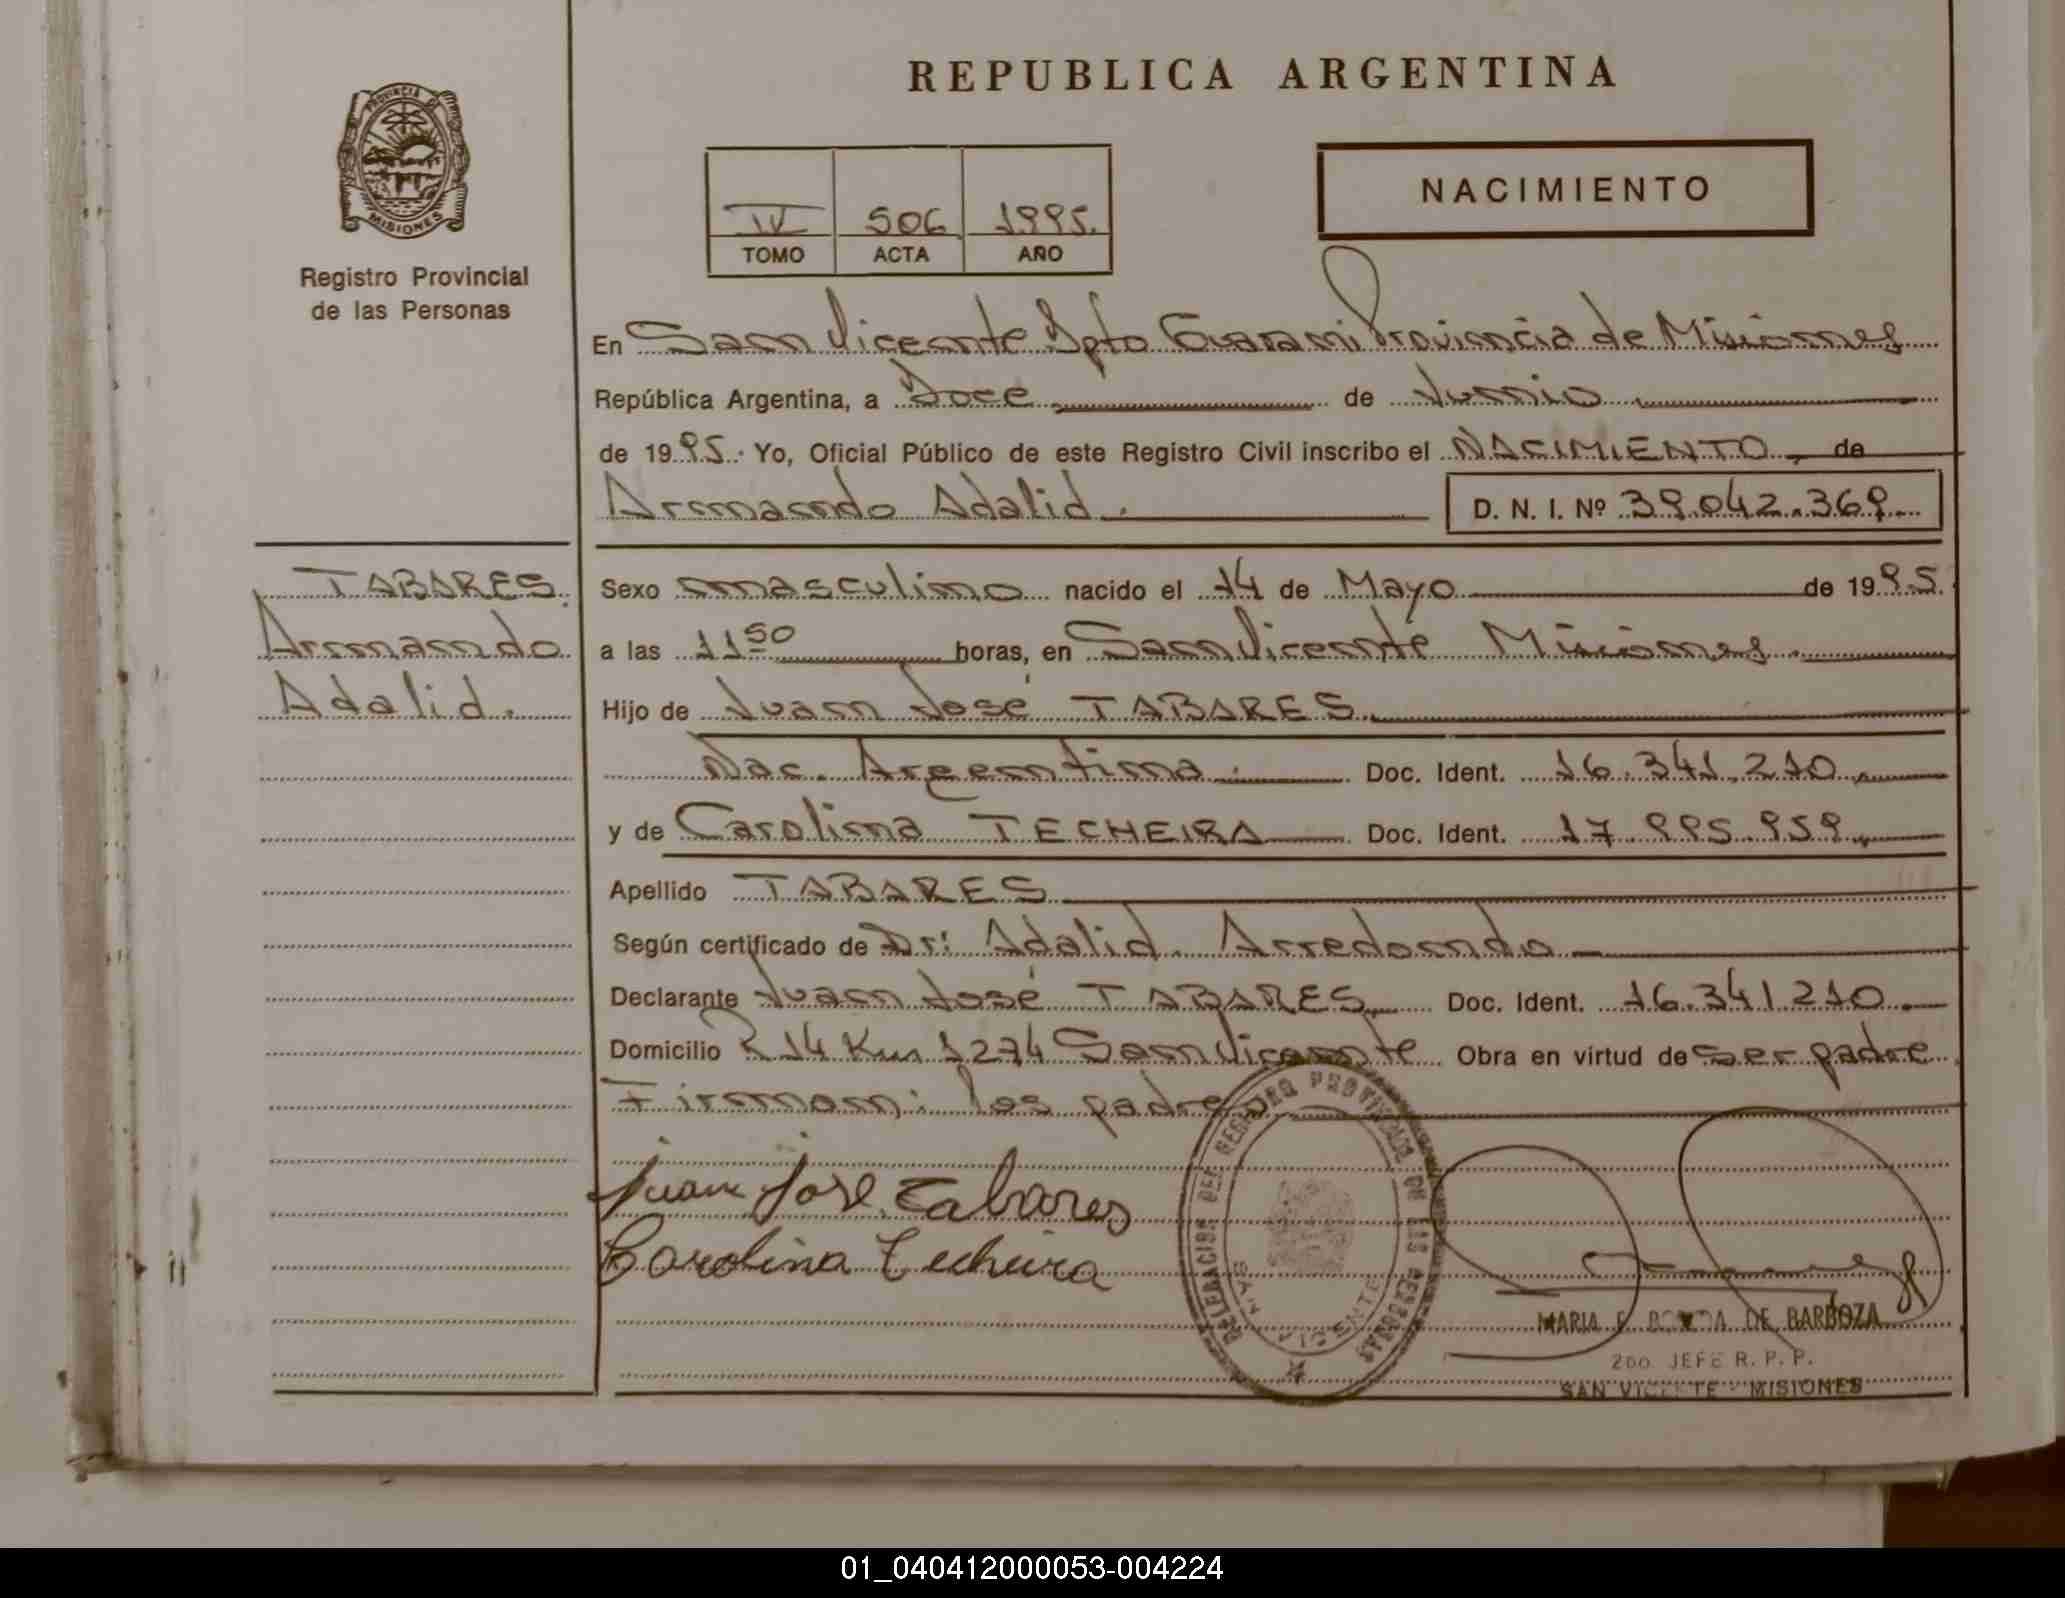 REPUBLICA ARGENTINA
PROVINCIA DE
MISIONES
Registro Provincial
de las Personas
IV 506 1995.
TOMO ACTA AÑO
NACIMIENTO
En San Vicente Dpto Guarani Provincia de Misiones
República Argentina, a Doce de Junio
de 1995. Yo, Oficial Público de este Registro Civil inscribo el NACIMIENTO de
Armando Adalid. D. N. I. Nº 39.042.369
TABARES
Armando
Adalid.
Sexo masculino nacido el 14 de Mayo de 1995.
a las 11 50 horas, en San Vicente Misiones
Hijo de Juan José TABARES
Nac. Argentina. Doc. Ident. 16.341.210
y de Carolina TECHEIRA Doc. Ident. 17.995.959
Apellido TABARES
Según certificado de Dr: Adalid Arredondo
Declarante Juan José TABARES Doc. Ident. 16.341210.
Domicilio R 14 Km 1274 San Vicente Obra en virtud de ser padre
Firman: los padres
Juan José Tabares
Carolina Techeira
DELEGACION DEL REGISTRO PROVINCIAL DE LAS PERSONAS
VICENTE
MARIA DE BARBOZA
2do. JEFE R. P. P.
SAN VICENTE - MISIONES
01_040412000053-004224